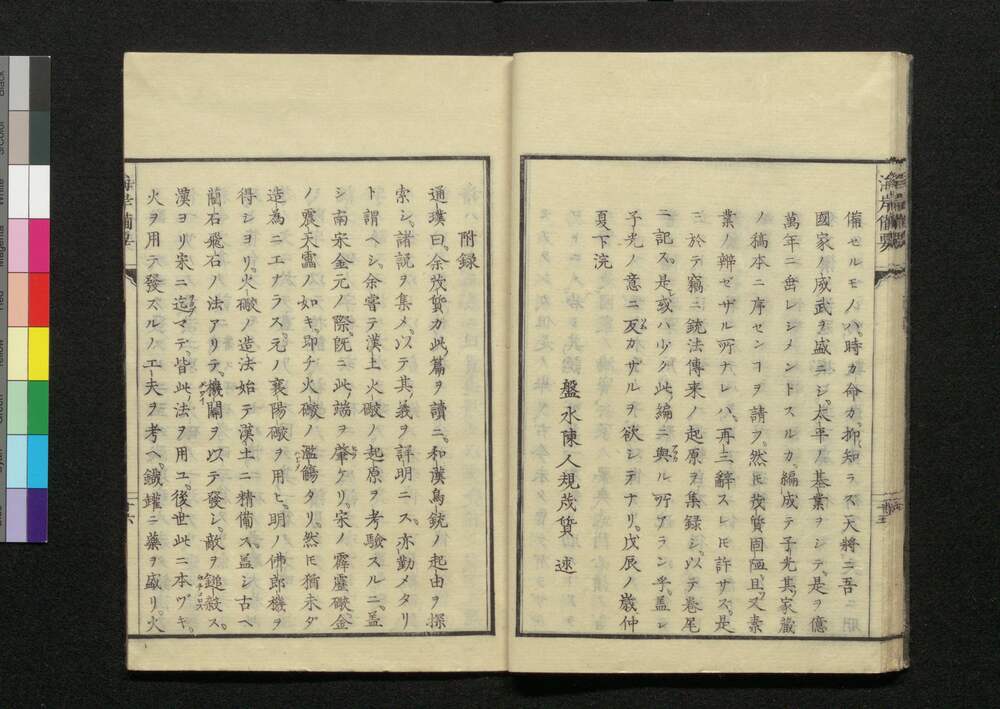 海岸備要
備セルモノハ時カ命カ抑知ラス天將ニ吾
國家ノ威武ヲ盛ニシ太平ノ基業ヲシテ是ヲ億
萬年ニ垂レシメントスルカ編成テ子光其家藏
ノ稿本ニ序センコヲ請フ然ㇳモ茂質固陋且ツ又素
業ノ辨ゼザル所ナレハ再三辭スレㇳモ許サス是
ニ於テ竊ニ銃法傳来ノ起原ヲ集録シ以テ卷尾
ニ記ス是或ハ少ク此編ニ興ル所アランヲ盖シ
子光ノ意ニ反カザルヲ欲シテナリ戊辰ノ嵗仲
夏下浣
盤水陳人規茂質述
附録
通璞曰余茂質カ此篇ヲ讀ニ和漢鳥銃ノ起由ヲ探
索シ諸説ヲ集メ以テ其義ヲ詳明ニス亦勤メタリ
ト謂ヘシ余嘗テ漢土火礮ノ起原ヲ考驗スルニ盖
シ南宋金元ノ際既ニ此端ヲ肇ケリ宋ノ霹靂礮金
ノ震天雷ノ如キ即チ火礮ノ濫觴タリ然ㇳモ猶未ダ
造為ニエナラス元ノ襄陽礮ヲ用ヒ明ノ佛郎機ヲ
得シヨリ火礮ノ造法始テ漢土ニ精備ス盖シ古ヘ
藺石飛石ノ法アリテ機關ヲ以テ發シ敵ヲ鎚殺ス
漢ヨリ宋ニ迄マテ皆此法ヲ用ユ後世此ニ本ヅキ
火ヲ用テ發スルノ工夫ヲ考ヘ鐵鑵ニ藥ヲ盛リ火